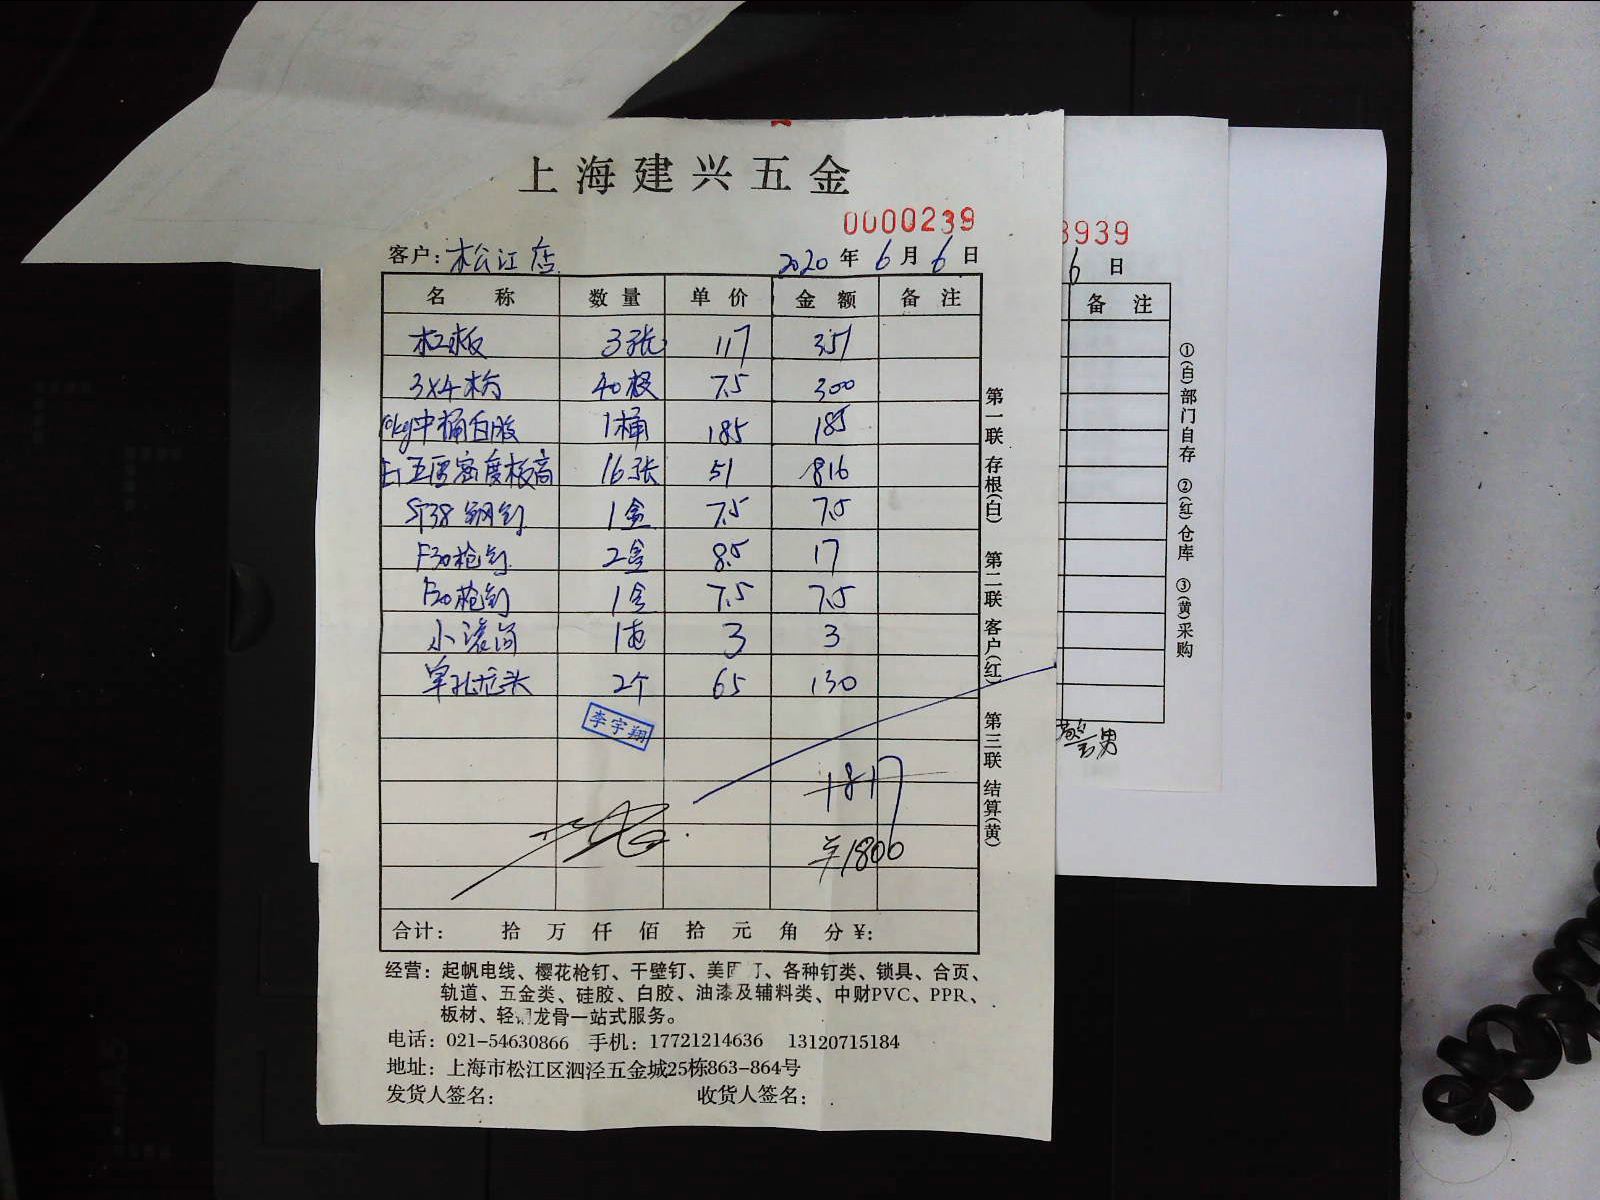 上海建兴五金
0000239
客户:松江店 2020年6月6日
名称 数量 单价 金额 备注
木工板 3张 117 351
3×4木方 40根 7.5 300
10kg中桶白胶 1桶 185 185
E1五厘密度板高 16张 51 816
ST38钢钉 1盒 7.5 7.5
F30枪钉 2盒 8.5 17
F20枪钉 1盒 7.5 7.5
小滚筒 1包 3 3
单孔龙头 2个 65 130
李宇翔
1817
¥1800
合计: 拾 万 仟 佰 拾 元 角 分 ¥:
经营:起帆电线、樱花枪钉、干壁钉、美固钉、各种钉类、锁具、合页、
轨道、五金类、硅胶、白胶、油漆及辅料类、中财PVC、PPR、
板材、轻钢龙骨一站式服务。
电话:021-54630866 手机:17721214636 13120715184
地址:上海市松江区泗泾五金城25栋863-864号
发货人签名: 收货人签名:
第一联 存根(白) 第二联 客户(红) 第三联 结算(黄)
3939
6日
备注
①(白)部门自存 ②(红)仓库 ③(黄)采购